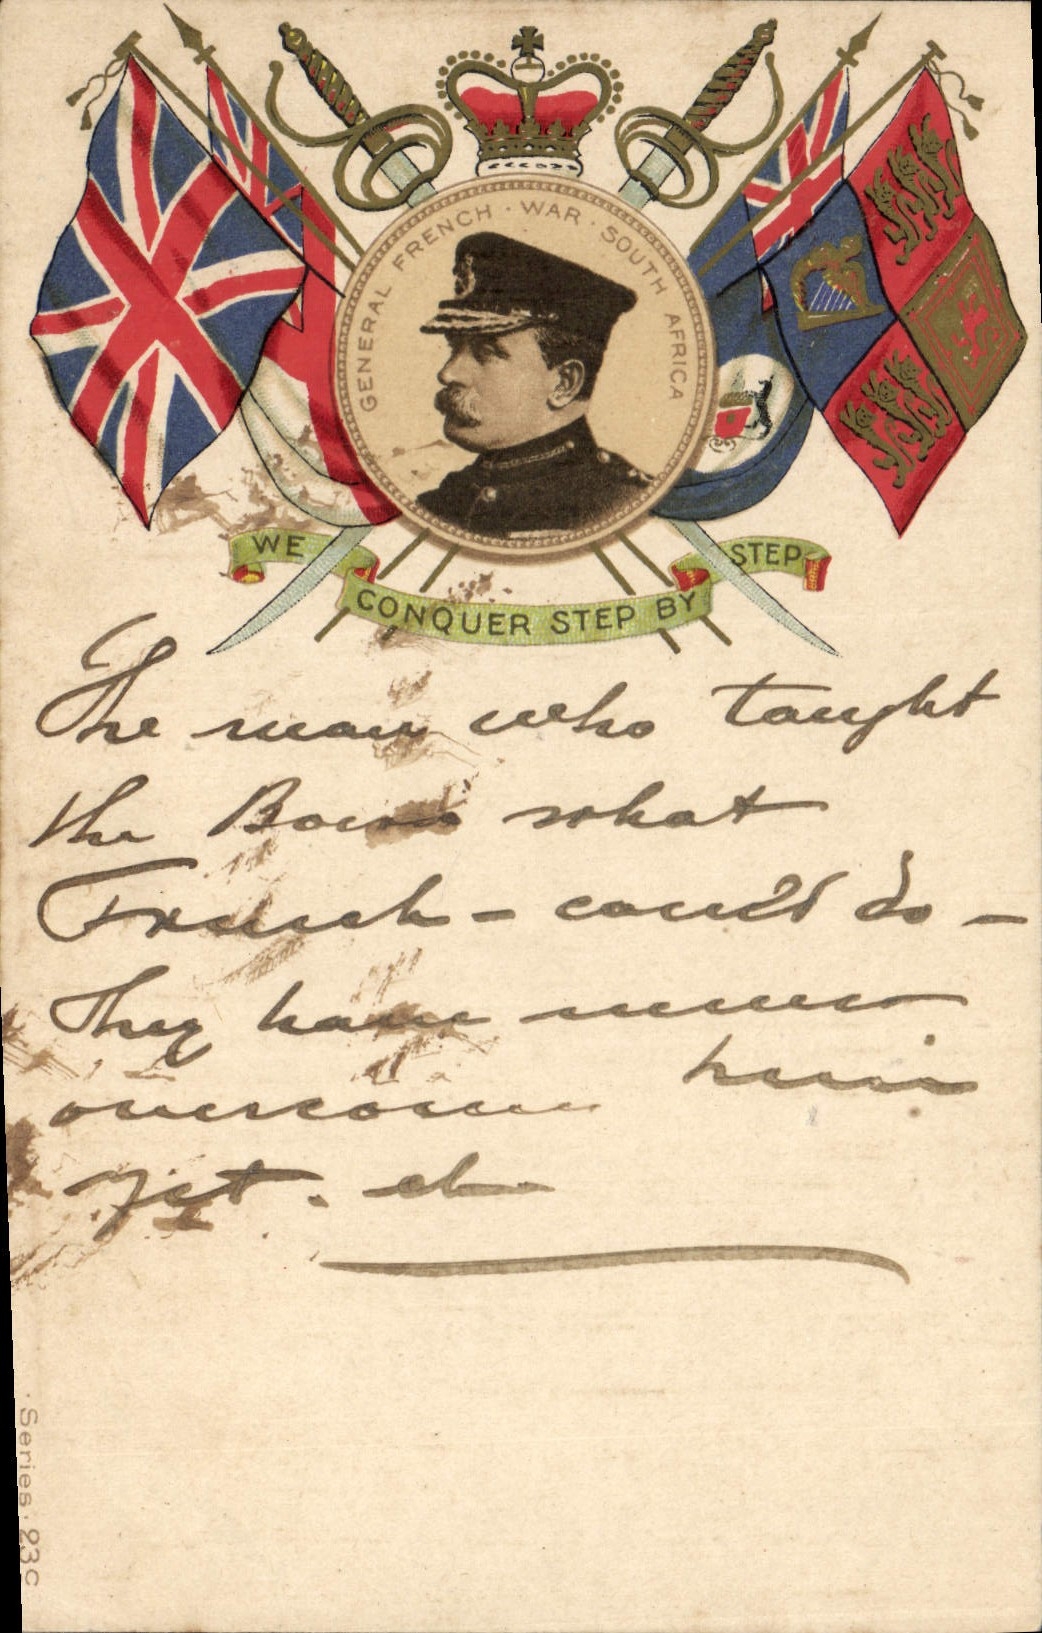 GENERAL FRENCH · WAR · SOUTH AFRICA
WE CONQUER STEP BY STEP
The man who taught
the Boers what
French - could do -
They have never
overcome him
yet. eh
Series. 23c